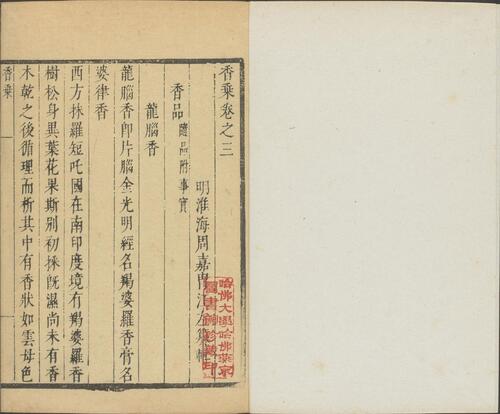 香乘卷之三
明淮海周嘉胄江左纂輯
香品 隨品附事實
龍腦香
龍腦香即片腦金光明經名羯婆羅香膏名
婆律香
西方抹羅短吒國在南印度境有羯婆羅香
樹松身異葉花果斯別初採既濕尚未有香
木乾之後循理而析其中有香狀如雲母色
香乘
哈佛大學哈佛燕京
圖書館珍藏印